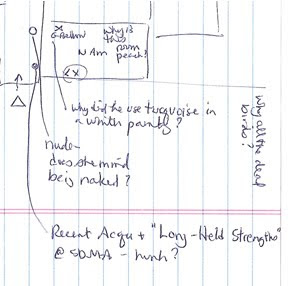 Why is
this
room
peach?
N Am
Why did he use turquoise in
a whith painty?
nude
does she mind
being naked?
Why all the dead
birds?
Recent Acqu + "Long-Held Strengths"
@ SDMA - hunh?